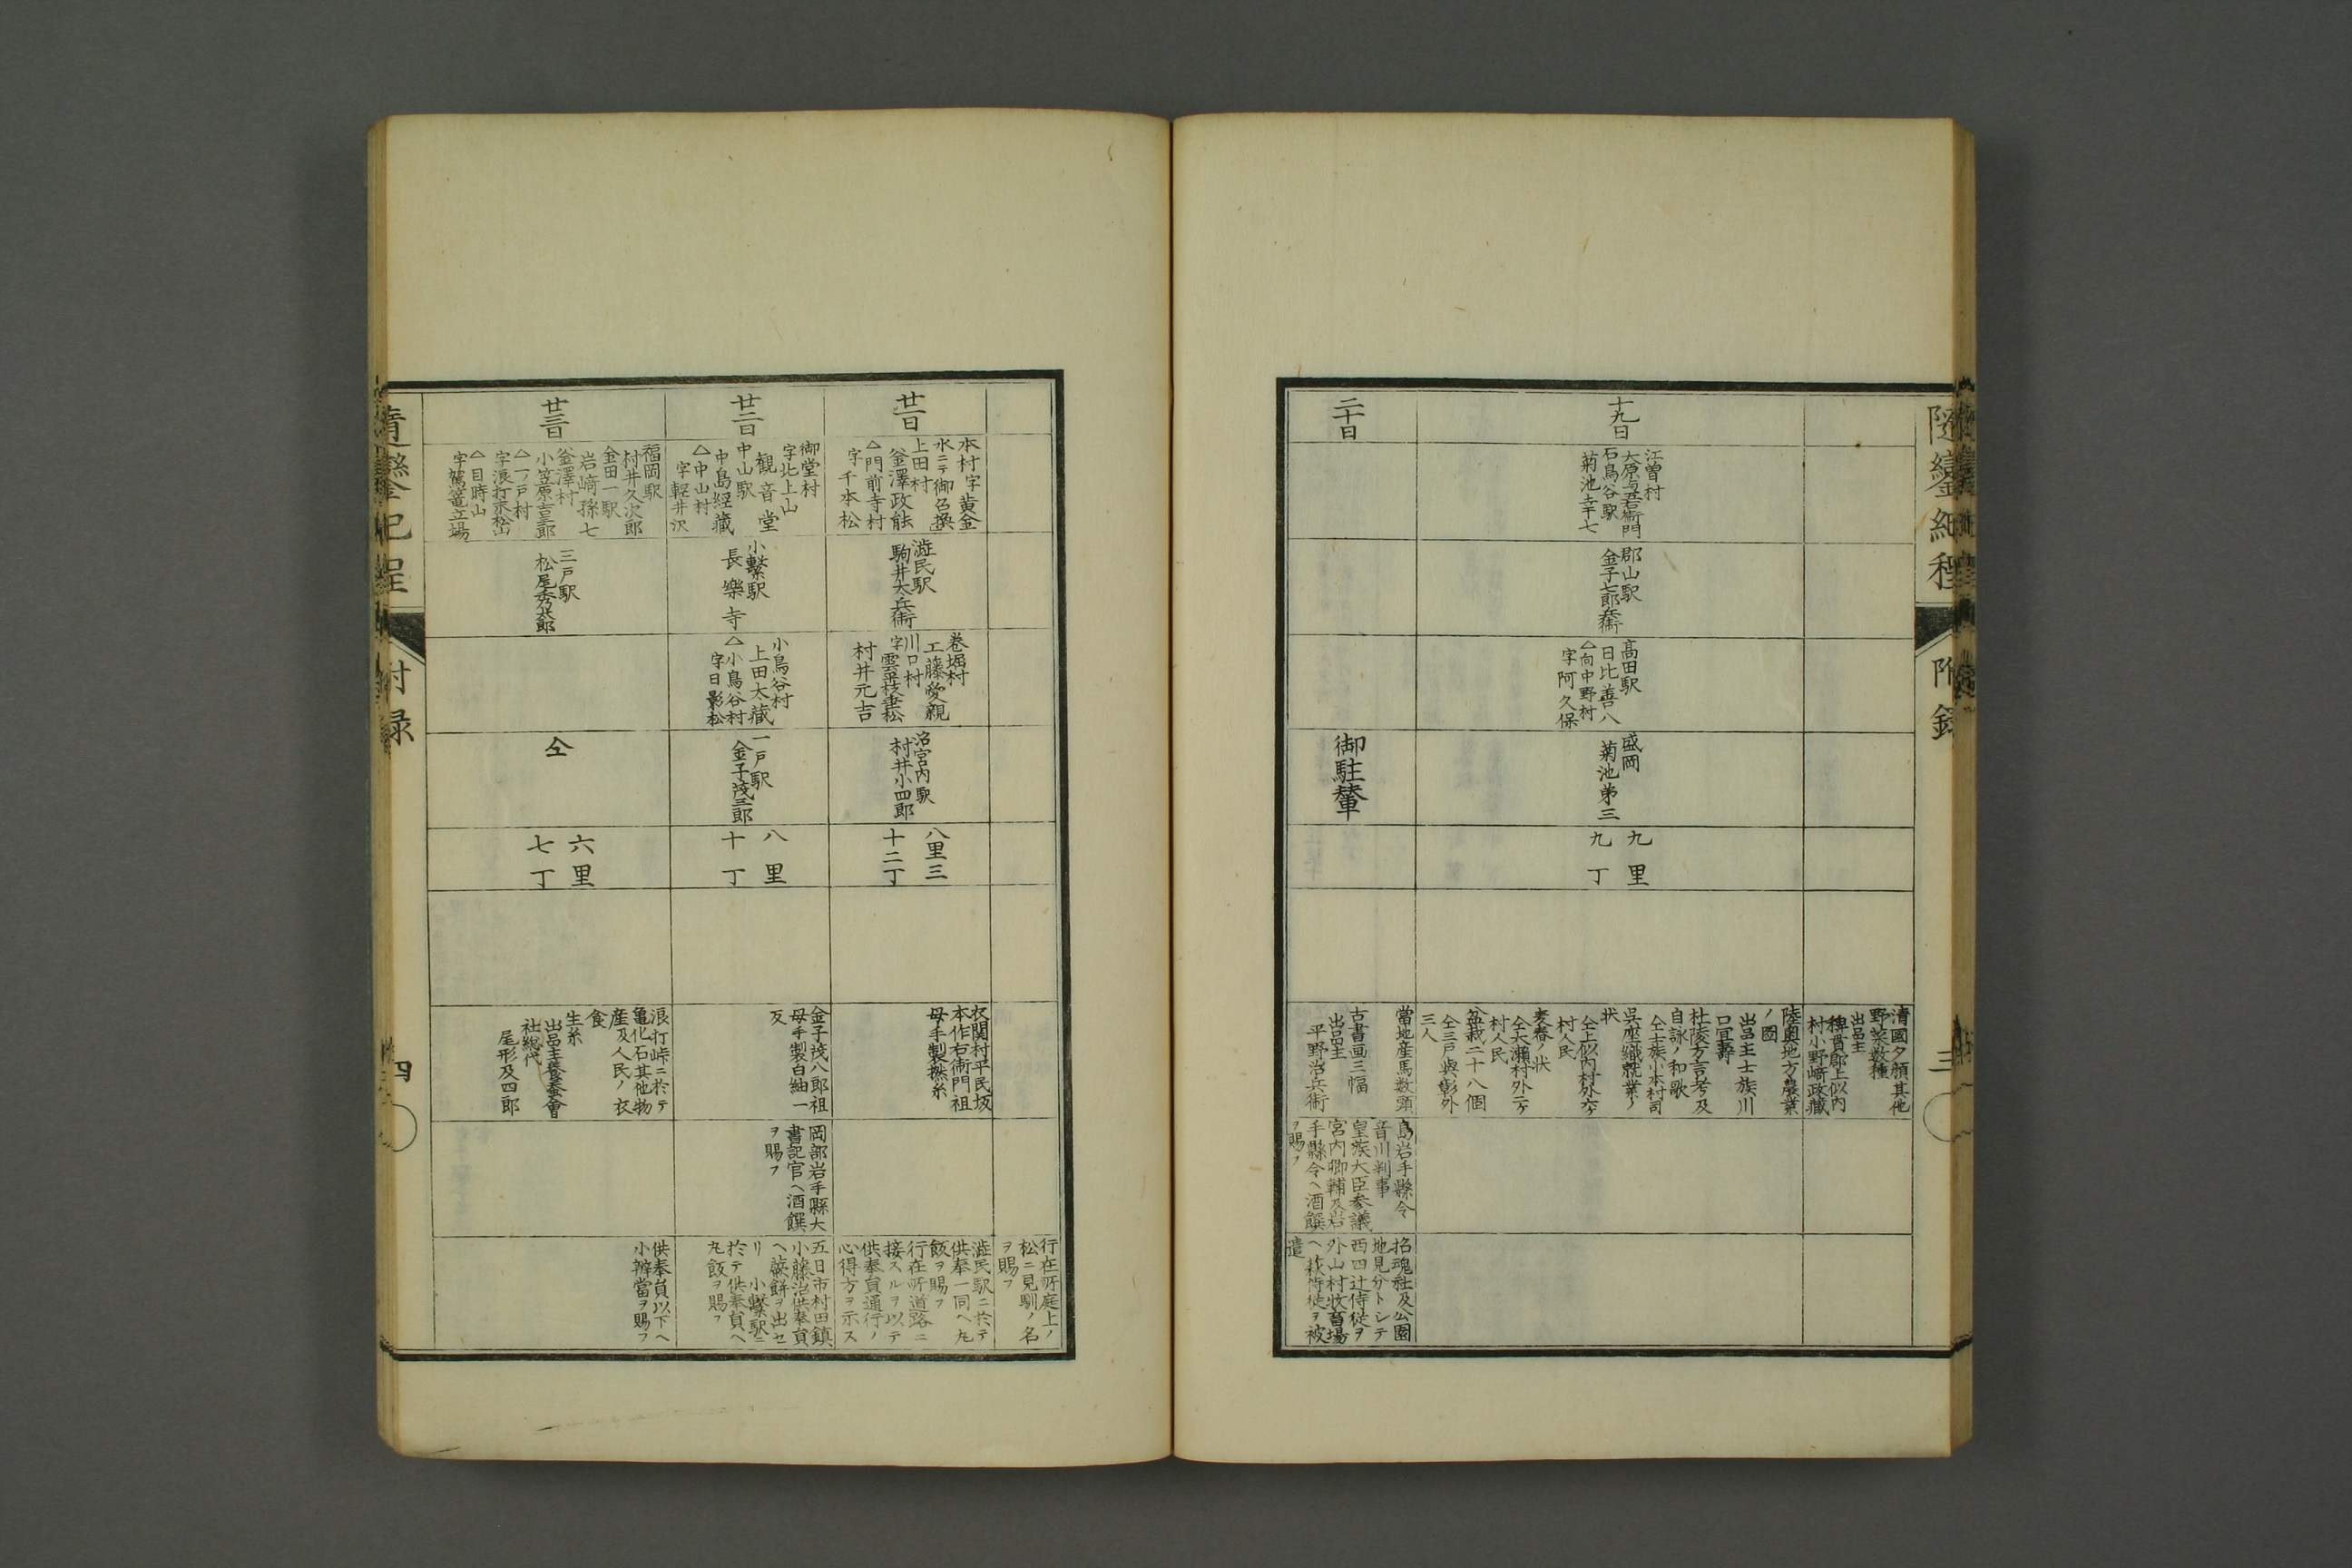 隨鑾紀程
附録
三
清國夕顔其他
野菜数種
出品主
稗貫郡上似内
村小野﨑政藏
陸奥地方農業
ノ圖
出品主士族川
口宜壽
杜陵方言考及
自詠ノ和歌
仝士族小本村司
呉座織就業ノ
状
仝上似内村外六ケ
村人民
麦舂ノ状
仝大瀬村外二ケ
村人民
盆栽二十八個
仝三戸與彰外
三人
十九日
江曽村
大原与五右衛門
石鳥谷駅
菊池幸七
郡山駅
金子七郎兵衛
髙田駅
日比善八
△向中野村
字阿久保
盛岡
菊池弟三
九里
九丁
二十日
御駐輦
當地産馬数頭
古書画三幅
出品主
平野治兵衛
島岩手縣令
音川判事
皇族大臣参議
宮内卿輔及岩
手縣令ヘ酒饌
ヲ賜フ
招魂社及公園
地見分トシテ
西四辻侍従ヲ
外山村牧畜場
ヘ萩侍従ヲ被
遣
行在所庭上ノ
松ニ見馴ノ名
ヲ賜フ
廿一日
本村字黄金
水ニテ御召換
上田村
釜澤政能
△門前寺村
字千本松
澁民駅
駒井太兵衛
巻堀村
工藤愛親
川口村
字雲歪枝垂松
村井元吉
沼宮内駅
村井小四郎
八里三
十二丁
衣関村平民坂
本作右衛門祖
母手製撚糸
澁民駅ニ於テ
供奉一同ヘ丸
飯ヲ賜フ
行在所道路ニ
接スルヲ以テ
供奉員通行ノ
心得方ヲ示ス
廿二日
御堂村
字北上山
観音堂
中山駅
中島經藏
△中山村
字軽井沢
小繋駅
長樂寺
小鳥谷村
上田太藏
△小鳥谷村
字日影松
一戸駅
金子茂三郎
八里
十丁
金子茂八郎祖
母手製白紬一
反
岡部岩手縣大
書記官ヘ酒饌
ヲ賜フ
五日市村田鎮
小藤治供奉員
ヘ蕨餅ヲ出セ
リ 小繋駅ニ
於テ供奉員ヘ
丸飯ヲ賜フ
廿三日
福岡駅
村井久次郎
金田一駅
岩﨑孫七
釜澤村
小笠原吉三郎
△一ノ戸村
字浪打末松山
△目時山
字駕篭立場
三戸駅
松尾秀太郎
仝
六里
七丁
浪打峠ニ於テ
亀化石其他物
産及人民ノ衣
食
生糸
出品主養蚕會
社総代
尾形及四郎
供奉員以下ヘ
小辨當ヲ賜フ
隨鑾紀程
附録
四